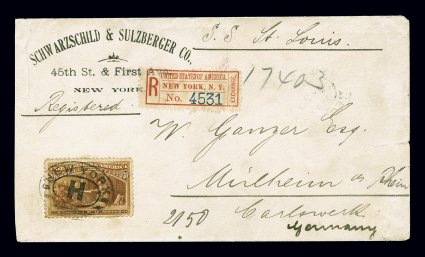 SCHWARZSCHILD & SULZBERGER CO.,
45th St. & First
NEW YORK
S. S. St. Louis.
Registered
R
UNITED STATES OF AMERICA.
NEW YORK, N.Y.
No. 4531
EXCHANGE
17403
W. Ganzer Esq.
Mülheim a/ Rhein
Carlswerk
Germany
2150
NEW YORK
H